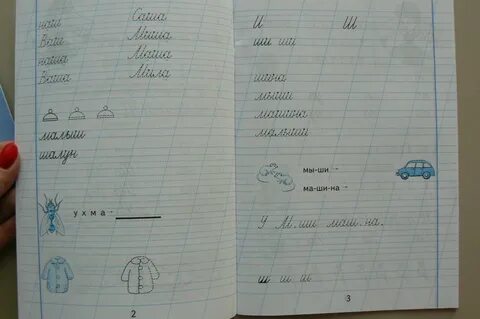 наш Саша
Ваш
наша Маша
Ваша Мила
малыш
шалун
ухма -
2
Ш
ши ши
шина
мыши
машина
малыши
мы-ши -
ма-ши-на -
У М.ши маш.на.
ш ш ш
3